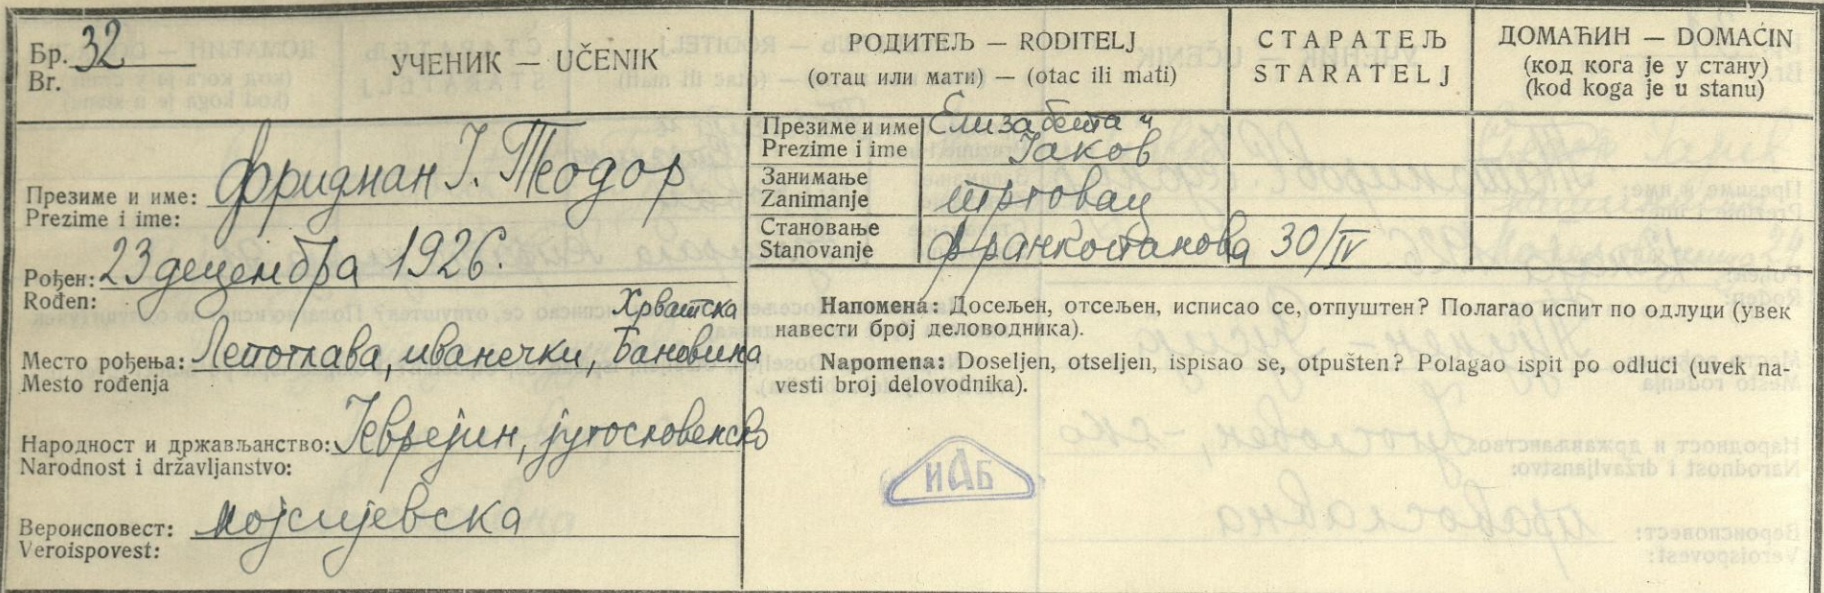 Бр. 32
Br.
УЧЕНИК — UČENIK
РОДИТЕЉ — RODITELJ
(отац или мати) — (otac ili mati)
СТАРАТЕЉ
STARATELJ
ДОМАЋИН — DOMAĆIN
(код кога је у стану)
(kod koga je u stanu)
Презиме и име: Фридман Ј. Теодор
Prezime i ime:
Рођен: 23 децембра 1926.
Rođen:
Хрватска
Место рођења: Лепоглава, иванечки, Бановина
Mesto rođenja
Народност и држављанство: Јеврејин, југословенско
Narodnost i državljanstvo:
Вероисповест: мојсијевска
Veroispovest:
Презиме и име Елизабета и
Prezime i ime Јаков
Занимање
Zanimanje трговац
Становање
Stanovanje Франкопанова 30/IV
Напомена: Досељен, отсељен, исписао се, отпуштен? Полагао испит по одлуци (увек
навести број деловодника).
Napomena: Doseljen, otseljen, ispisao se, otpušten? Polagao ispit po odluci (uvek na-
vesti broj delovodnika).
ИАБ